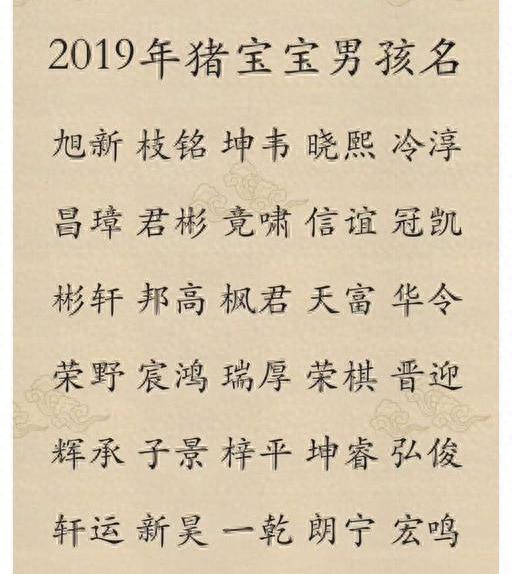 2019年猪宝宝男孩名
旭新 枝铭 坤韦 晓熙 冷淳
昌璋 君彬 竟啸 信谊 冠凯
彬轩 邦高 枫君 天富 华令
荣野 宸鸿 瑞厚 荣棋 晋迎
辉承 子景 梓平 坤睿 弘俊
轩运 新昊 一乾 朗宁 宏鸣